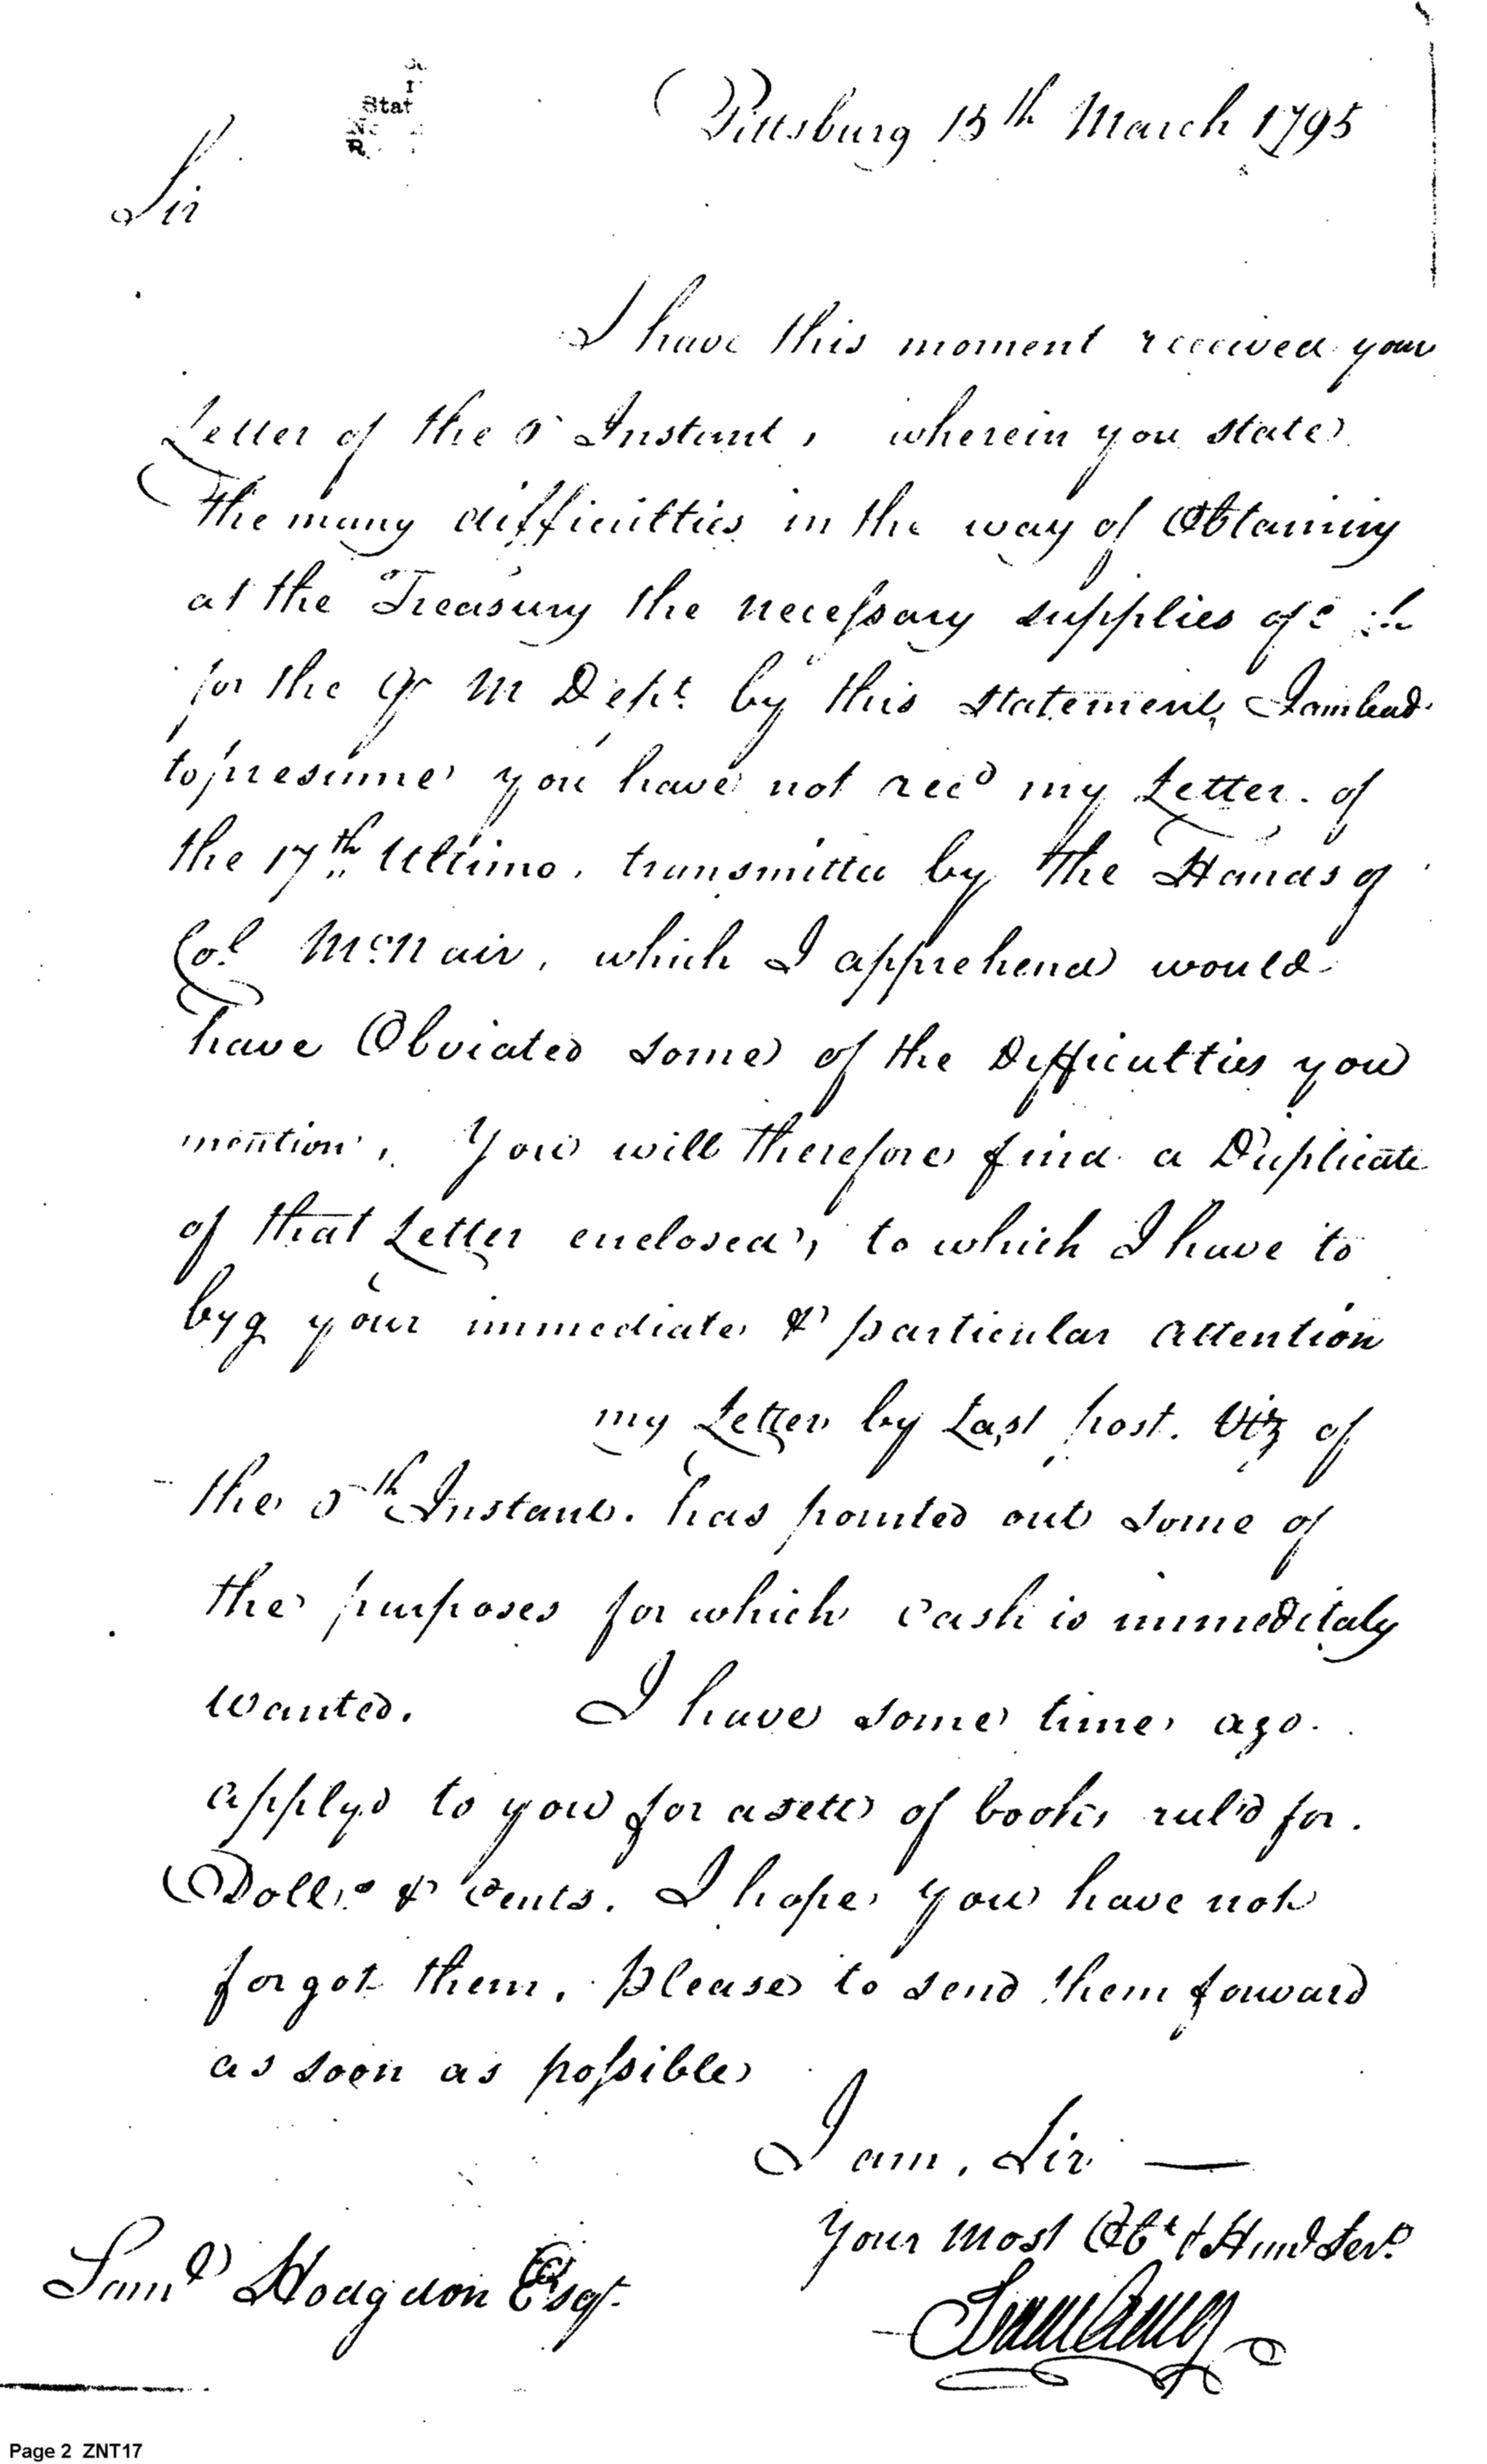 Stat
Pittsburg 15th March 1795
Sir
I have this moment received your
Letter of the 5 Instant, wherein you state
the many difficulties in the way of Obtaining
at the Treasury the necessary supplies of
for the Qr M Dept. by this statement, I am lead
to presume you have not recd my Letter of
the 17th Ultimo, transmitted by the Hands of
Col. McNair, which I apprehend would
have Obviated some of the Difficulties you
mention, You will therefore find a Duplicate
of that Letter enclosed, to which I have to
byg your immediate & particular attention
my Letter by Last post. Viz of
the 5th Instant. has pointed out some of
the purposes for which cash is immeditaly
wanted. I have some time ago
apply'd to you for a sett of books rul'd for
Dolls. & Cents. I hope you have not
forgot them, please to send them forward
as soon as possible
I am, Sir —
Your most Obt & Hum Servt
Saml Hodgdon Esqr.
Page 2 ZNT17